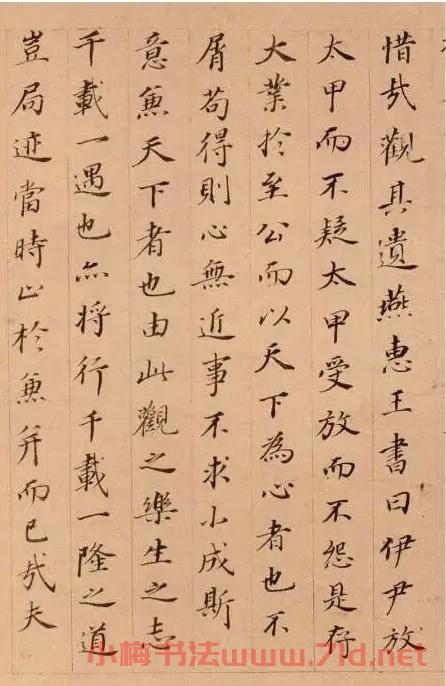 惜㢤觀其遺燕惠王書曰伊尹放
太甲而不疑太甲受放而不怨是存
大業於至公而以天下為心者也不
屑苟得則心無近事不求小成斯
意兼天下者也由此觀之樂生之志
千載一遇也亦将行千載一隆之道
豈局迹當時止於兼并而已㢤夫
小梅书法www.7ld.net